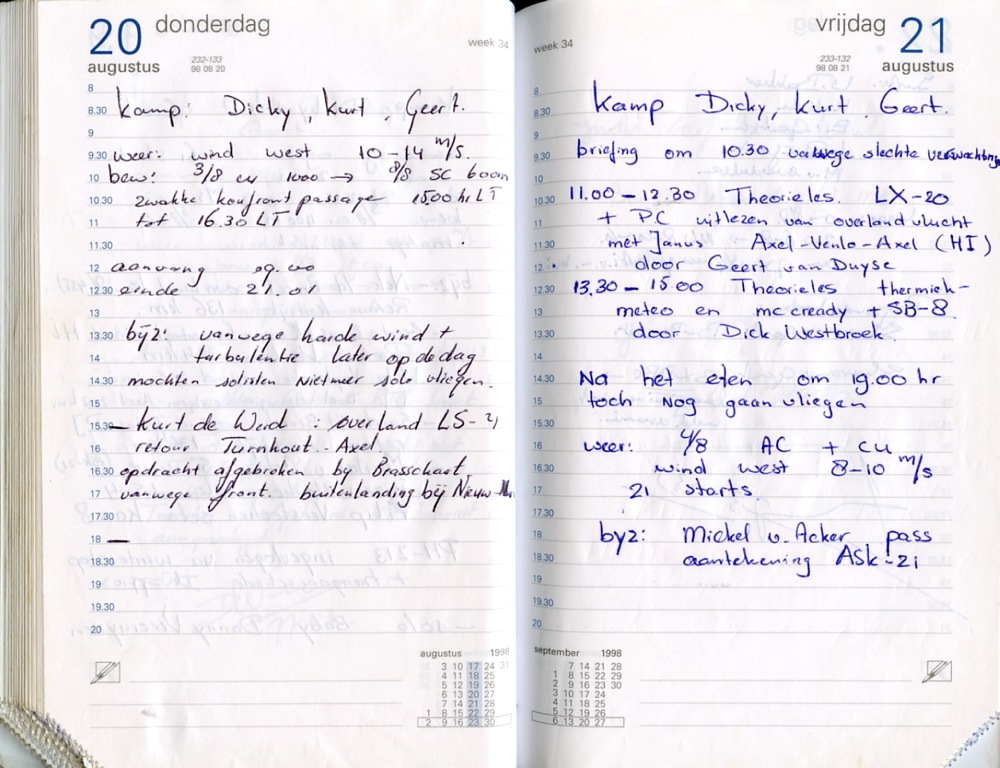 20 donderdag
week 34
augustus
232-133
98 08 20
8
8.30 Kamp: Dicky, Kurt, Geert.
9
9.30 weer: wind west 10-14 m/s.
10 bew: 3/8 cu 1000 → 8/8 SC 600m
10.30 zwakke koufront passage 15.00 hr LT
11 tot 16.30 LT
11.30
12 aanvang 09.00
12.30 einde 21.01
13
13.30 bijz: vanwege harde wind +
14 turbulentie later op de dag
14.30 mochten solisten niet meer solo vliegen.
15
15.30 Kurt de Werd: overland LS-4
16 retour Turnhout - Axel.
16.30 opdracht afgebroken by Brasschaat
17 vanwege front. buitenlanding bij Nieuw-
17.30
18
18.30
19
19.30
20
augustus 1998
3 10 17 24 31
4 11 18 25
5 12 19 26
6 13 20 27
7 14 21 28
1 8 15 22 29
2 9 16 23 30
vrijdag 21
week 34
233-132
98 08 21
augustus
8
8.30 Kamp Dicky, Kurt, Geert.
9
9.30 briefing om 10.30 vanwege slechte verwachting
10
10.30 11.00 – 12.30 Theorieles. LX-20
11 + PC uitlezen van overlandvlucht
11.30 met Janus Axel-Venlo-Axel (HI)
12 door Geert van Duyse
12.30 13.30 – 15.00 Theorieles thermiek-
13 meteo en mc cready + SB-8.
13.30 door Dick Westbroek.
14
14.30 Na het eten om 19.00 hr
15 toch nog gaan vliegen
15.30
16 weer: 4/8 AC + cu
16.30 wind west 8-10 m/s
17 21 starts.
17.30
18 byz: Mickel v. Acker pass
18.30 aantekening ASK-21
19
19.30
20
september 1998
7 14 21 28
1 8 15 22 29
2 9 16 23 30
3 10 17 24
4 11 18 25
5 12 19 26
6 13 20 27